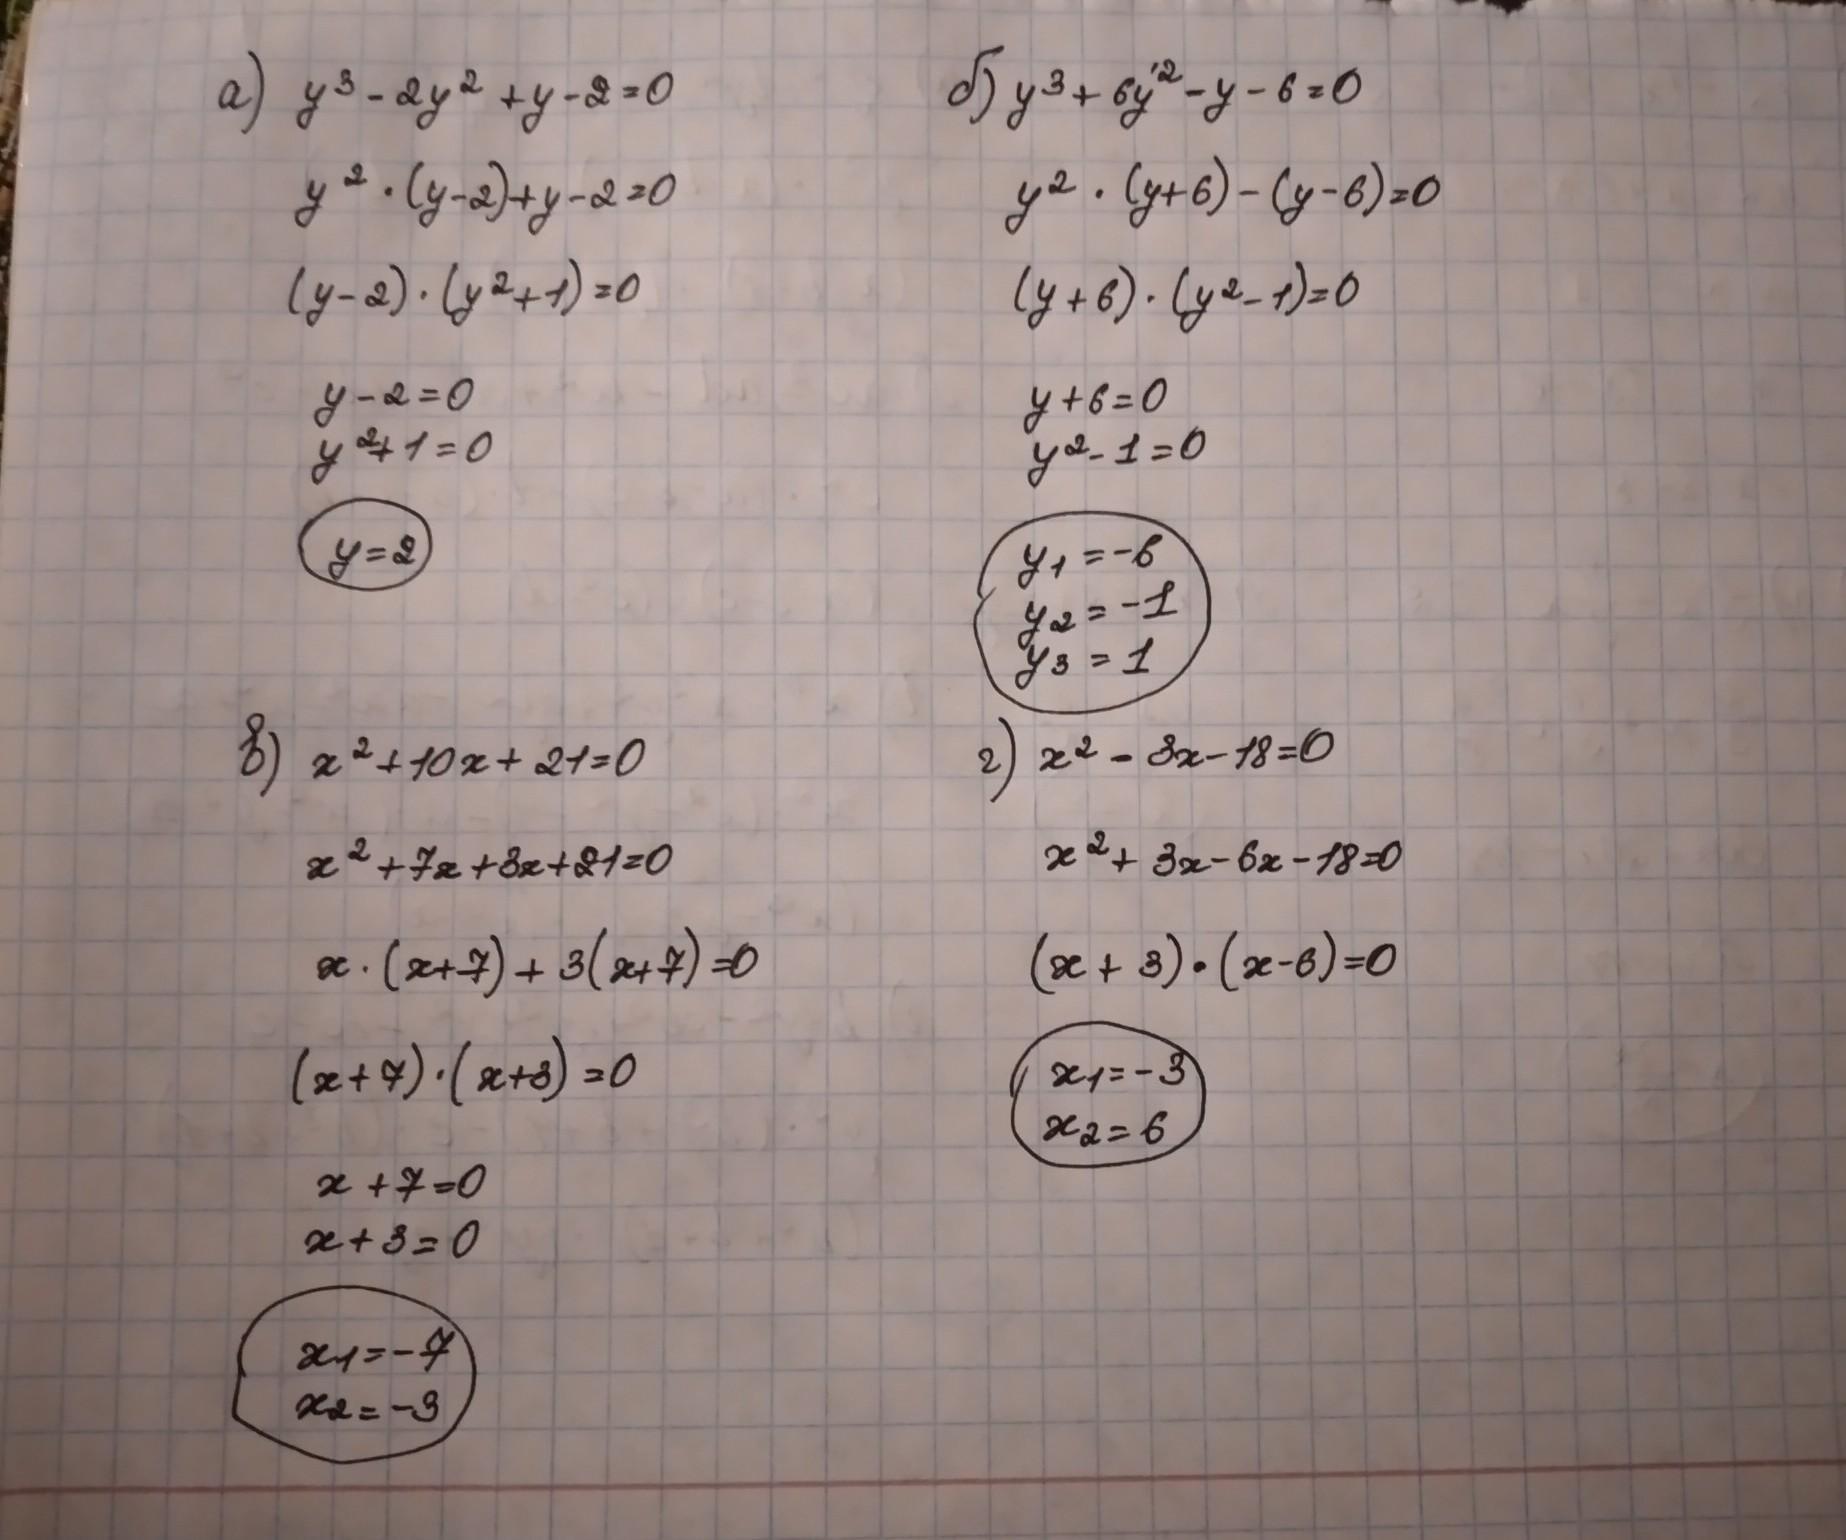 а) y³ - 2y² + y - 2 = 0
y² · (y-2) + y - 2 = 0
(y-2) · (y²+1) = 0
y - 2 = 0
y² + 1 = 0
y = 2
б) y³ + 6y² - y - 6 = 0
y² · (y+6) - (y-6) = 0
(y+6) · (y²-1) = 0
y + 6 = 0
y² - 1 = 0
y₁ = -6
y₂ = -1
y₃ = 1
в) x² + 10x + 21 = 0
x² + 7x + 3x + 21 = 0
x · (x+7) + 3(x+7) = 0
(x+7) · (x+3) = 0
x + 7 = 0
x + 3 = 0
x₁ = -7
x₂ = -3
г) x² - 3x - 18 = 0
x² + 3x - 6x - 18 = 0
(x + 3) · (x-6) = 0
x₁ = -3
x₂ = 6